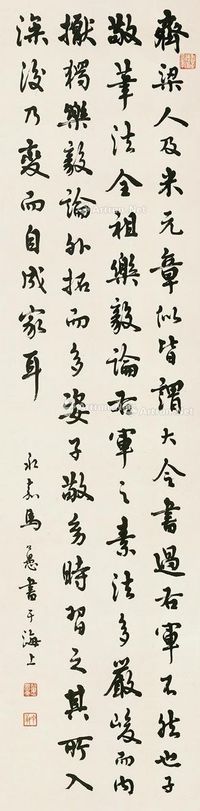 齊梁人及米元章似皆謂大令書過右軍不然也子
敬筆法全祖樂毅論右軍之素法多嚴峻而內
擫獨樂毅論外拓而多姿子敬幼時習之其所入
深後乃變而自成家耳
永嘉馬公愚書于海上